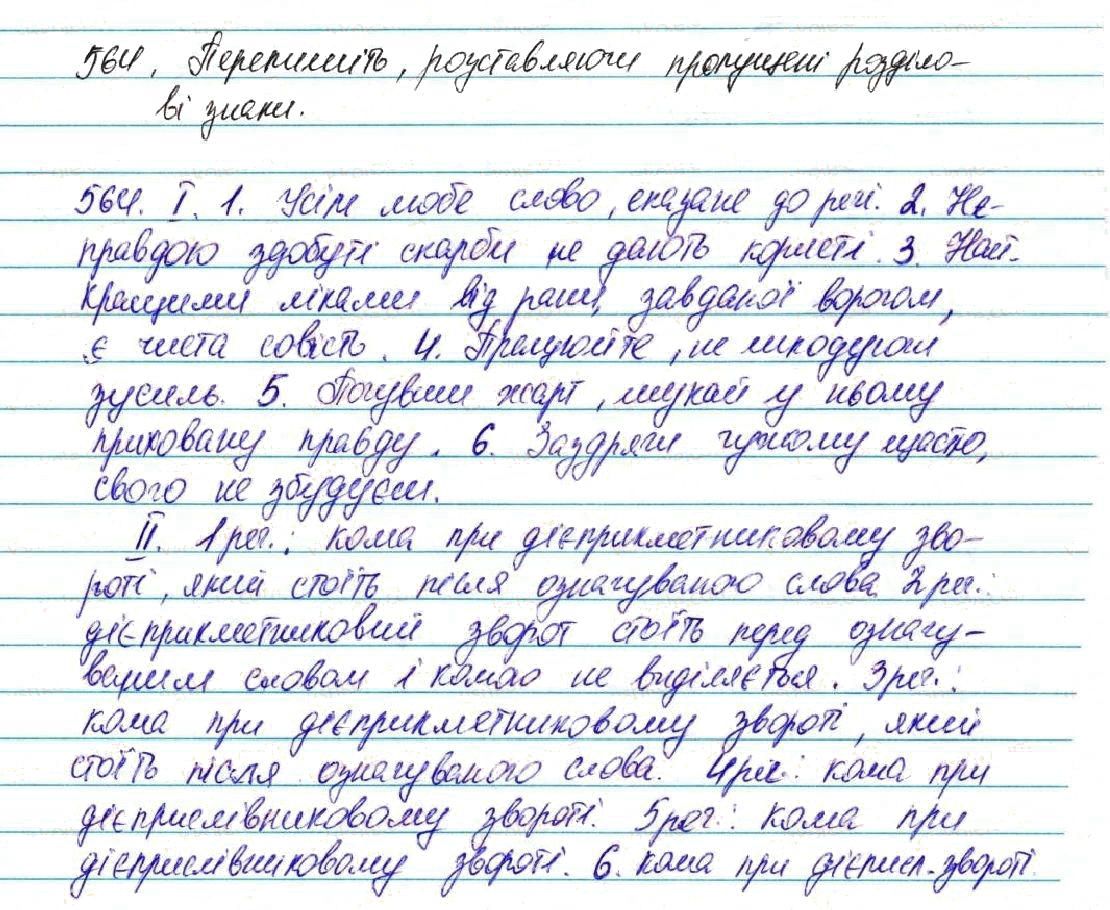 564. Перепишіть, розставляючи пропущені розділо-
ві знаки.
564. I. 1. Усім любе слово, сказане до речі. 2. Не-
правдою здобуті скарби не дають користі. 3. Най-
кращими ліками від рани, завданої ворогом,
є чиста совість. 4. Працюйте, не шкодуючи
зусиль. 5. Почувши жарт, шукай у ньому
приховану правду. 6. Заздрячи чужому щастю,
свого не збудуєш.
II. 1 реч.: кома при дієприкметниковому зво-
роті, який стоїть після означуваного слова 2 реч.:
дієприкметниковий зворот стоїть перед означу-
ваним словом і комою не виділяється. 3 реч.:
кома при дієприкметниковому звороті, який
стоїть після означуваного слова. 4 реч.: кома при
дієприслівниковому звороті. 5 реч.: кома при
дієприслівниковому звороті. 6. кома при дієприсл. звороті.